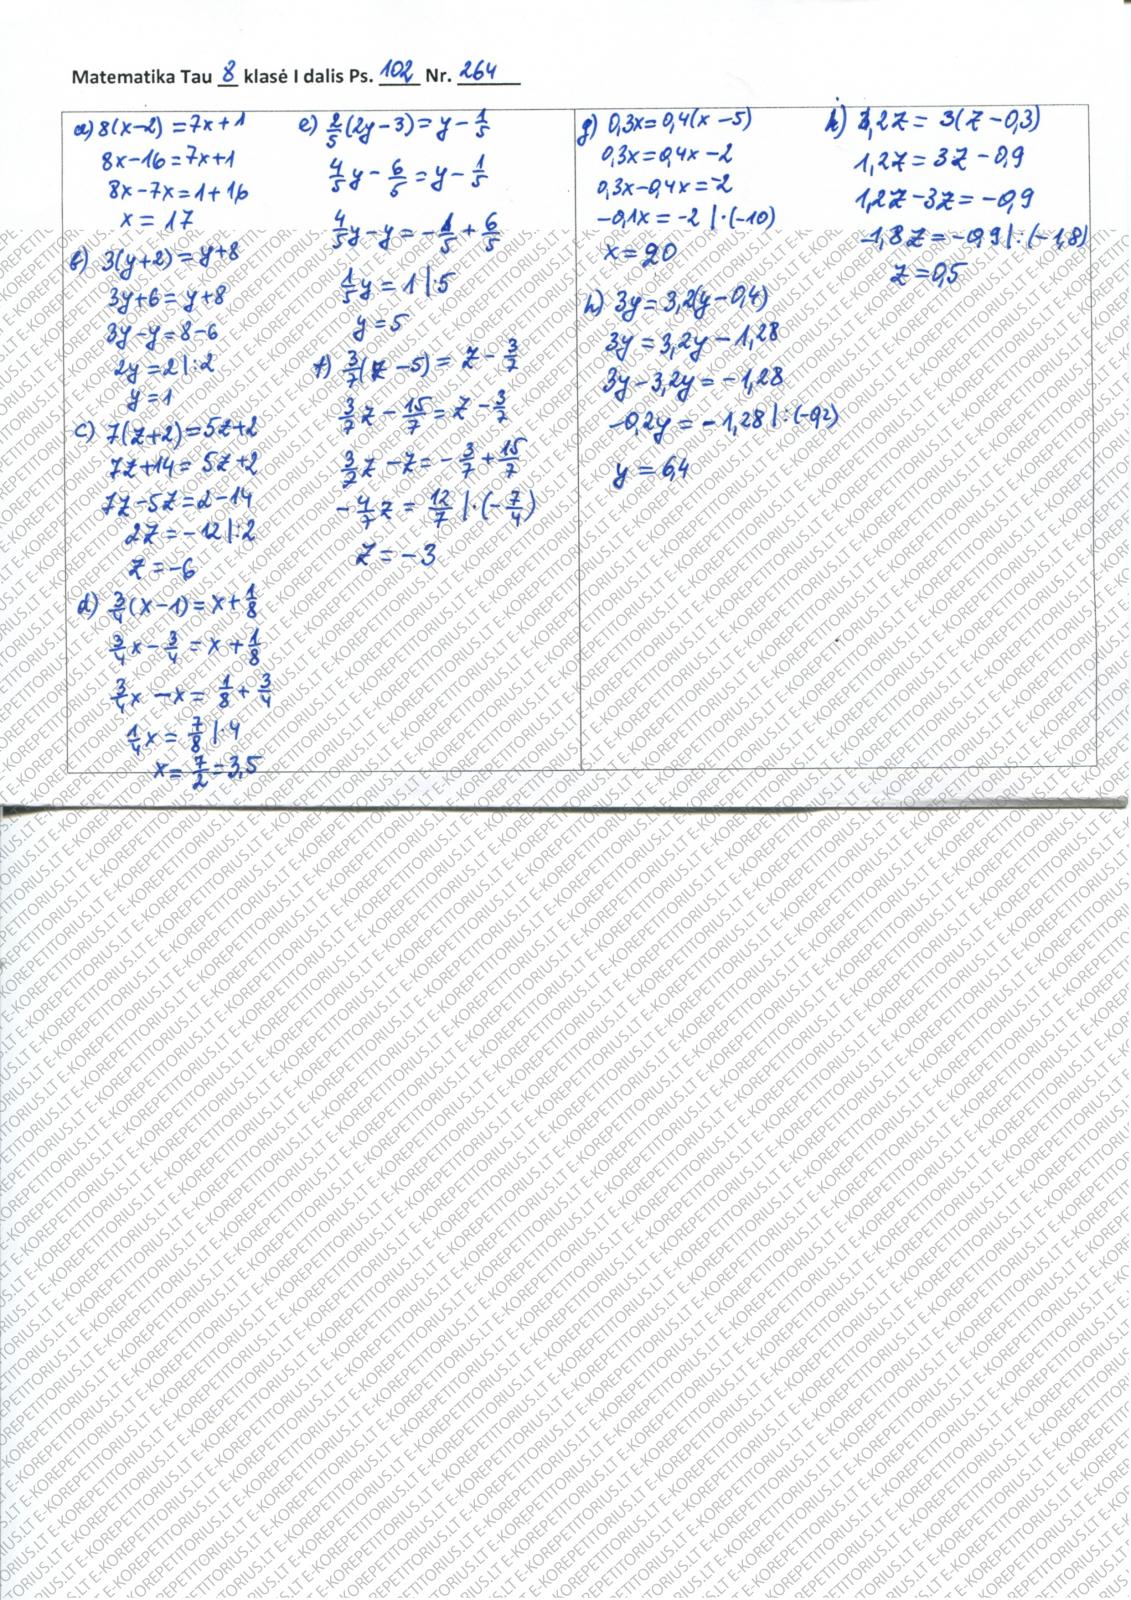 Matematika Tau 8 klasė I dalis Ps. 102 Nr. 264
a) 8(x-2) = 7x+1
8x-16=7x+1
8x-7x=1+16
x = 17
b) 3(y+2)=y+8
3y+6=y+8
3y-y=8-6
2y=2|:2
y=1
c) 7(z+2)=5z+2
7z+14=5z+2
7z-5z=2-14
2z=-12|:2
z=-6
d) 3/4(x-1)=x+1/8
3/4x-3/4=x+1/8
3/4x-x=1/8+3/4
1/4x=7/8|·4
x=7/2=3,5
e) 2/5(2y-3)=y-1/5
4/5y-6/5=y-1/5
4/5y-y=-1/5+6/5
1/5y=1|·5
y=5
f) 3/7(z-5)=z-3/7
3/7z-15/7=z-3/7
3/7z-z=-3/7+15/7
-4/7z=12/7|·(-7/4)
z=-3
g) 0,3x=0,4(x-5)
0,3x=0,4x-2
0,3x-0,4x=-2
-0,1x=-2|·(-10)
x=20
h) 3y=3,2(y-0,4)
3y=3,2y-1,28
3y-3,2y=-1,28
-0,2y=-1,28|:(-0,2)
y=6,4
k) 1,2z=3(z-0,3)
1,2z=3z-0,9
1,2z-3z=-0,9
-1,8z=-0,9|:(-1,8)
z=0,5
E-KOREPETITORIUS.LT